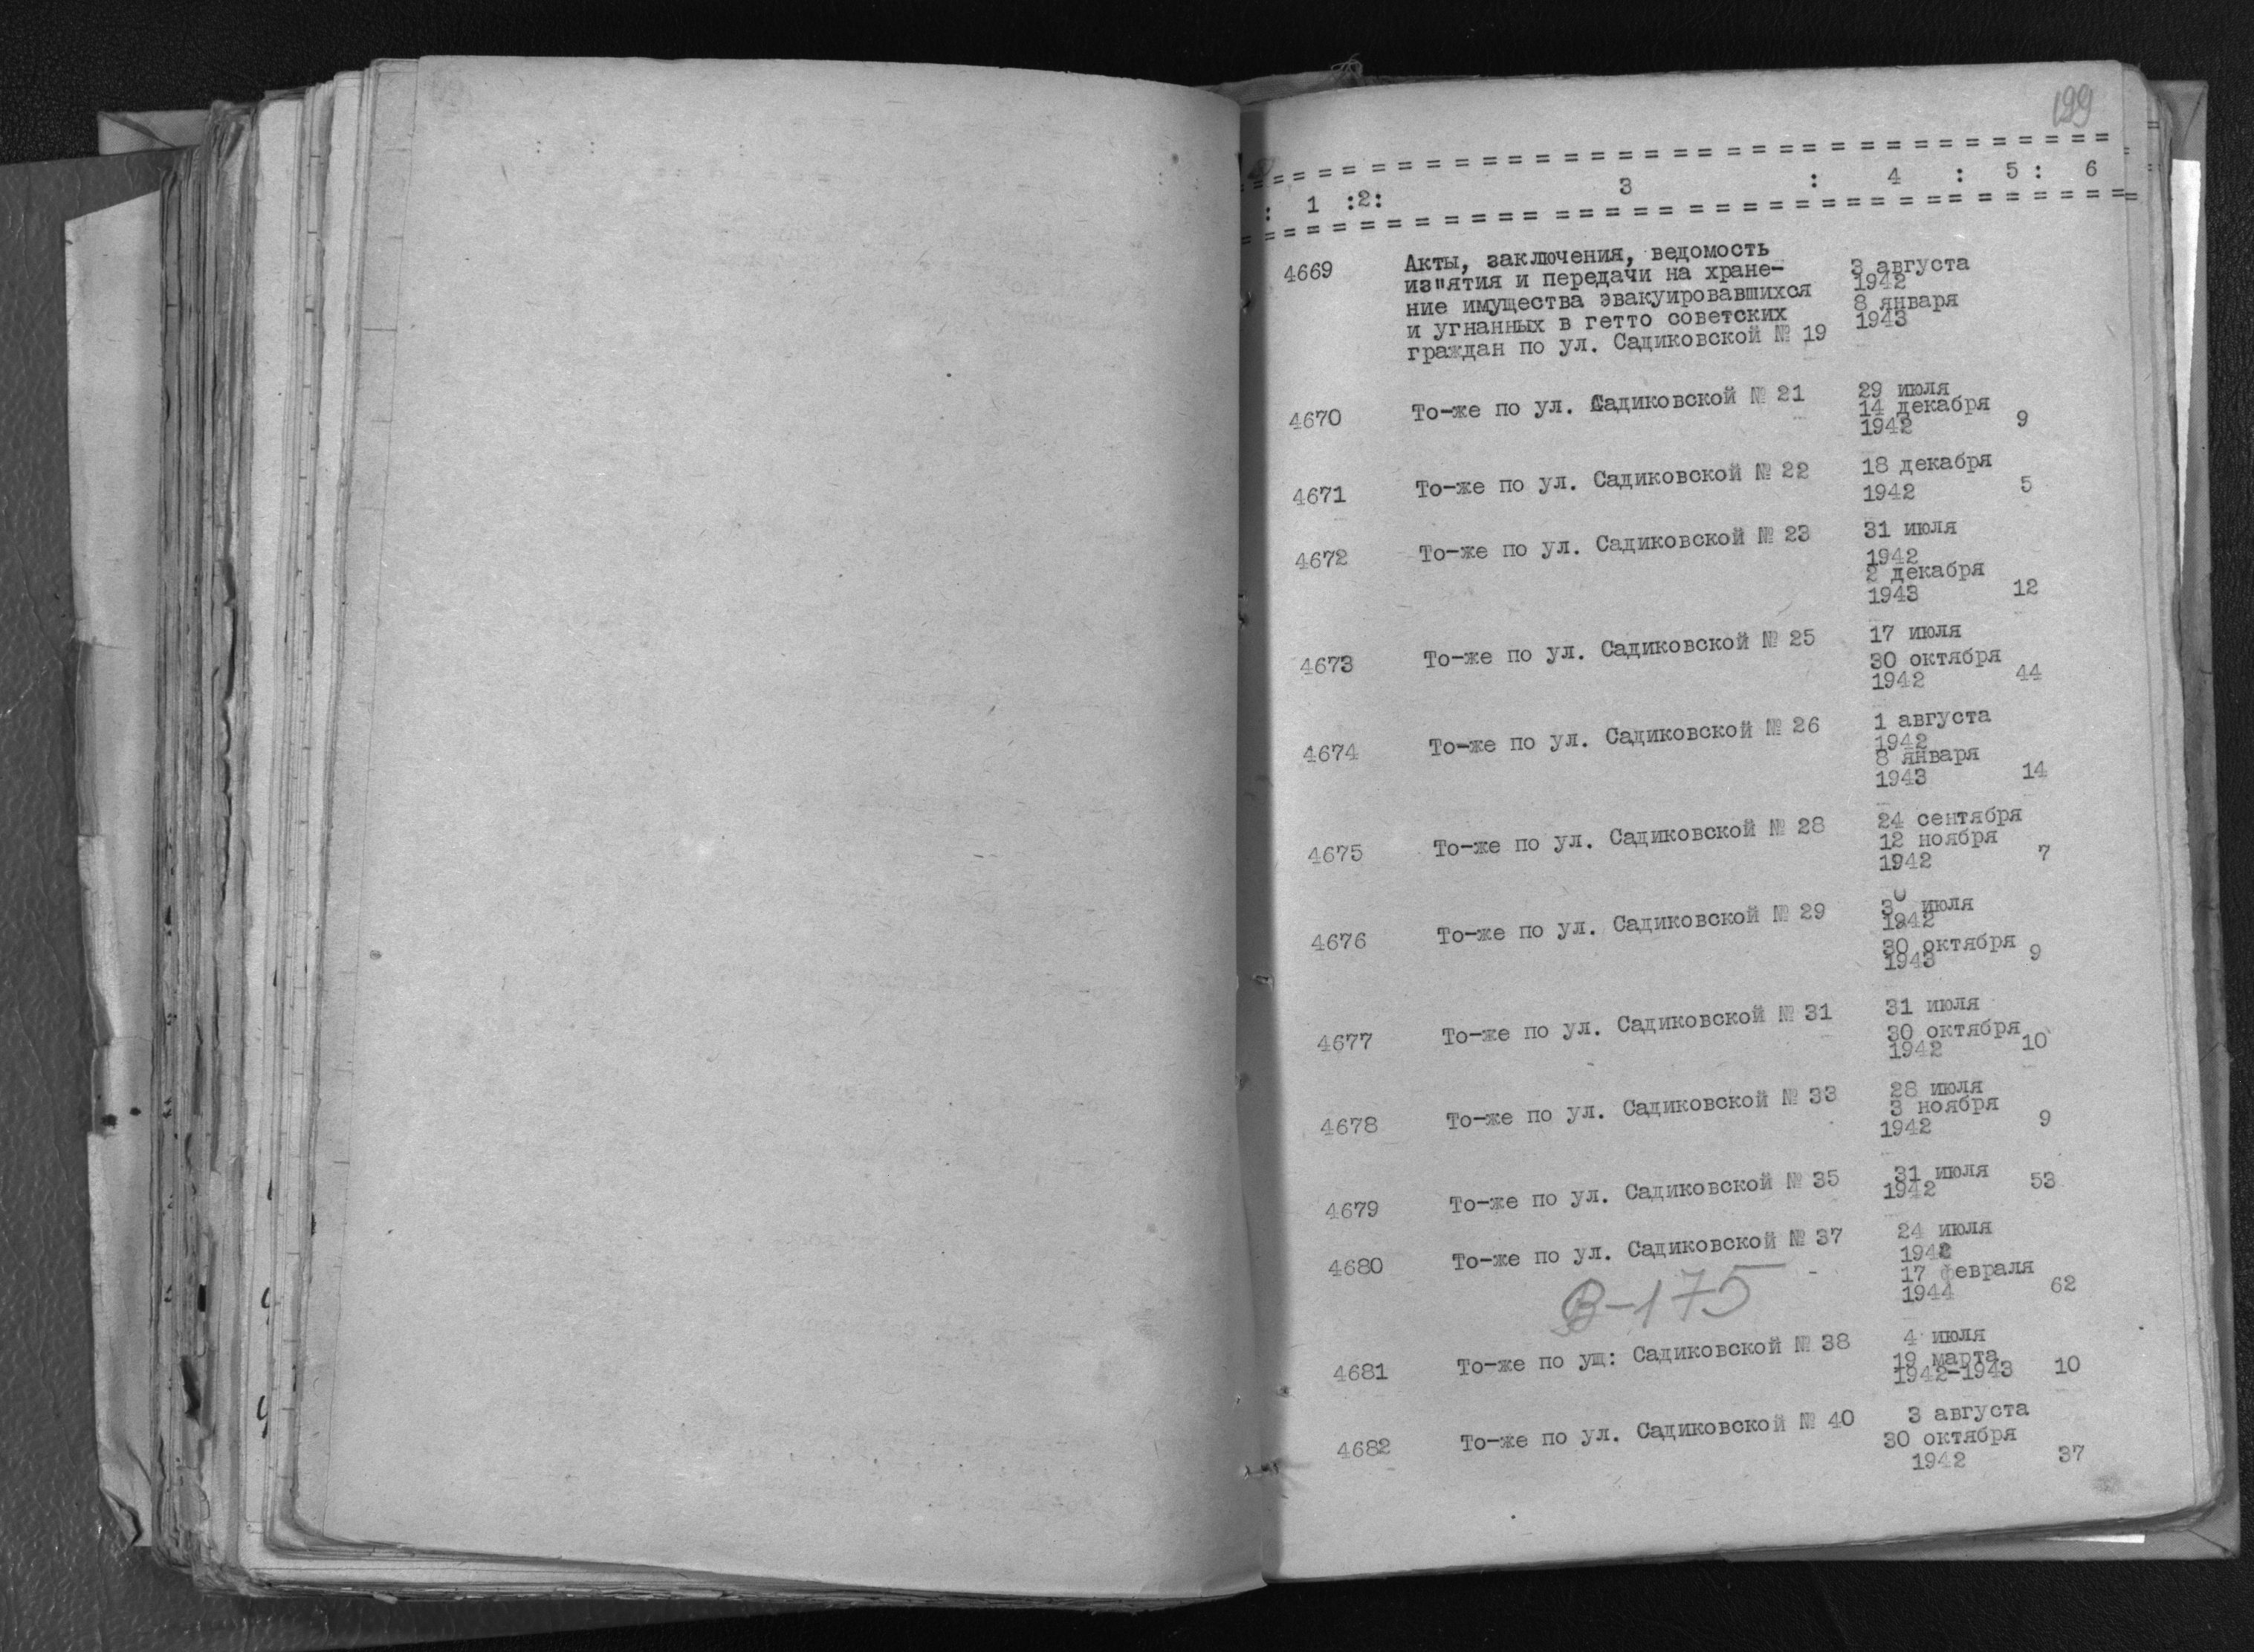 199
= = = = = = = = = = = = = = = = = = = = = = = = = = = = = = = =
: 1 :2: 3 : 4 : 5 : 6
= = = = = = = = = = = = = = = = = = = = = = = = = = = = = = = =
4669 Акты, заключения, ведомость
из"ятия и передачи на хране- 3 августа
ние имущества эвакуировавшихся 1942
и угнанных в гетто советских 8 января
граждан по ул. Садиковской № 19 1943
4670 То-же по ул. Садиковской № 21 29 июля
14 декабря
1942 9
4671 То-же по ул. Садиковской № 22 18 декабря
1942 5
4672 То-же по ул. Садиковской № 23 31 июля
1942
2 декабря
1943 12
4673 То-же по ул. Садиковской № 25 17 июля
30 октября
1942 44
4674 То-же по ул. Садиковской № 26 1 августа
1942
8 января
1943 14
4675 То-же по ул. Садиковской № 28 24 сентября
12 ноября
1942 7
4676 То-же по ул. Садиковской № 29 30 июля
1942
30 октября
1943 9
4677 То-же по ул. Садиковской № 31 31 июля
30 октября
1942 10
4678 То-же по ул. Садиковской № 33 28 июля
3 ноября
1942 9
4679 То-же по ул. Садиковской № 35 31 июля
1942 53
4680 То-же по ул. Садиковской № 37 24 июля
1942
17 февраля
1944 62
В-175
4681 То-же по ущ: Садиковской № 38 4 июля
19 марта
1942-1943 10
4682 То-же по ул. Садиковской № 40 3 августа
30 октября
1942 37